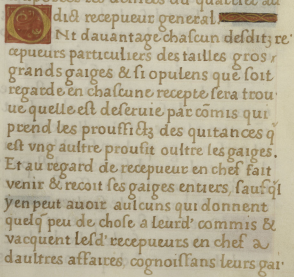 dict recepueur general.
Ont dauantage chascun desditz re'
cepueurs particuliers des tailles gros'
grandz gaiges & si opulens que soit
regarde en chascune recepte sera trou'
ue quelle est deseruie par cõmis qui
prend les proussictz des quitances q̃
est vng aultre prousit oultre les gaiges.
Et au regard de recepueur en chef fait
venir & recoit ses gaiges entiers, saufq̃l
y en peut auoir aulcuns qui donnent
quelq̃ peu de chose a leurd' commis &
vacquent lesd' recepueurs en chef a
daultres affaires, cognoissans leurs gai'